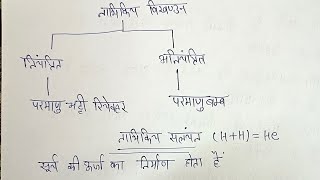 नाभिकिय विखण्डन
नियंत्रित
अनियंत्रित
परमाणु भट्टी रियेक्टर
परमाणु बम्ब
नाभिकिय सलंयन (H+H)=He
सूर्य की ऊर्जा का निर्माण होता है